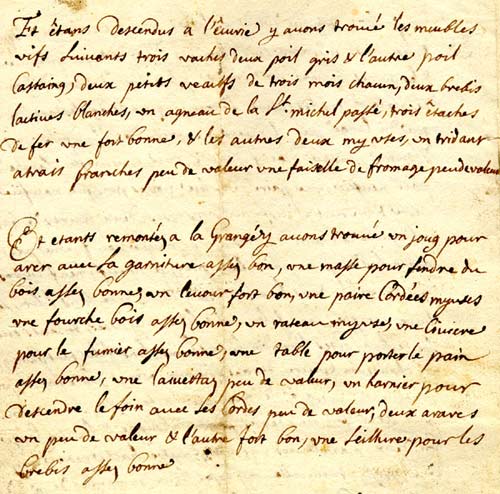 Et êtans descendus a l'êcurie y avons trouvé les meubles
vifs suivants trois vaches deux poil gris & l'autre poil
castaing, deux petits veaux de trois mois chacun, deux brebis
lactives blanches, un agneau de la St michel passé, trois êtaches
de fer une fort bonne, & les autres deux myuses, un tridant
a trais branches peu de valeur une faiselle de fromage peu de valeur
Et etants remontés a la Grange y avons trouvé un joug pour
arer avec sa garniture assez bon, une masse pour fendre du
bois assez bonne, un levour fort bon, une paire Cordées myuses
une fourche bois assez bonne, un rateau myuse, une
pour le fumier assez bonne, une table pour porter le pain
assez bonne, une peu de valeur, un harnier pour
descendre le foin avec ses Cordes peu de valeur, deux araires
un peu de valeur & l'autre fort bon, une pour les
brebis assez bonne